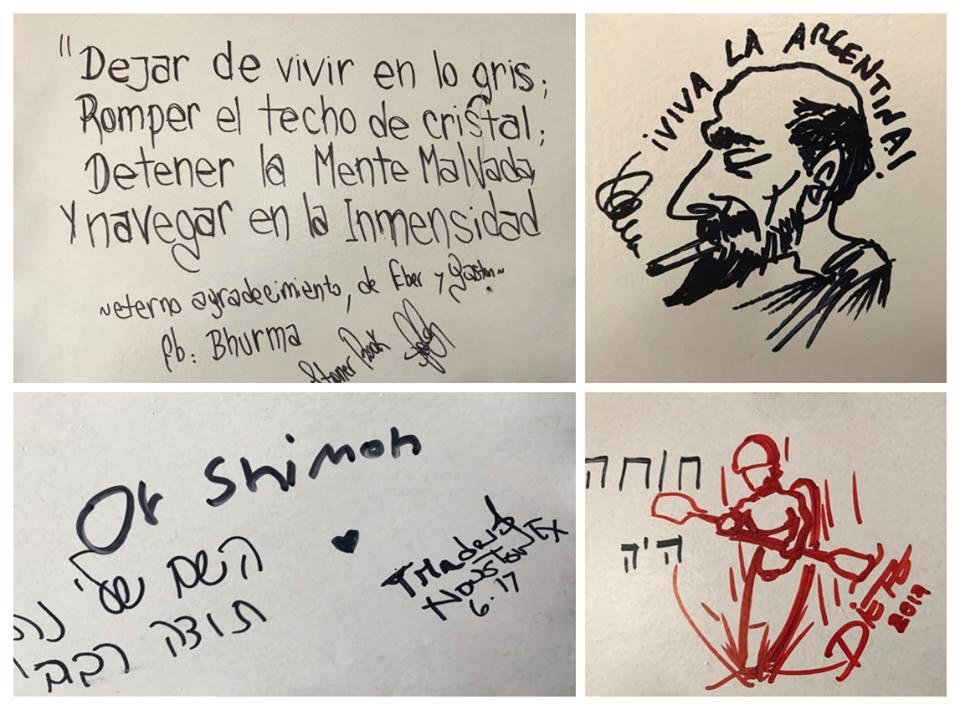 "Dejar de vivir en lo gris;
Romper el techo de cristal;
Detener la Mente Malvada,
Y navegar en la Inmensidad
~eterno agradecimiento, de Eber y Gastón~
fb: Bhurma
¡VIVA LA ARGENTINA!
Or Shimon
השם שלי
תודה
Houston TX
6.17
חוחה
ה'ה
DIEGO
2019